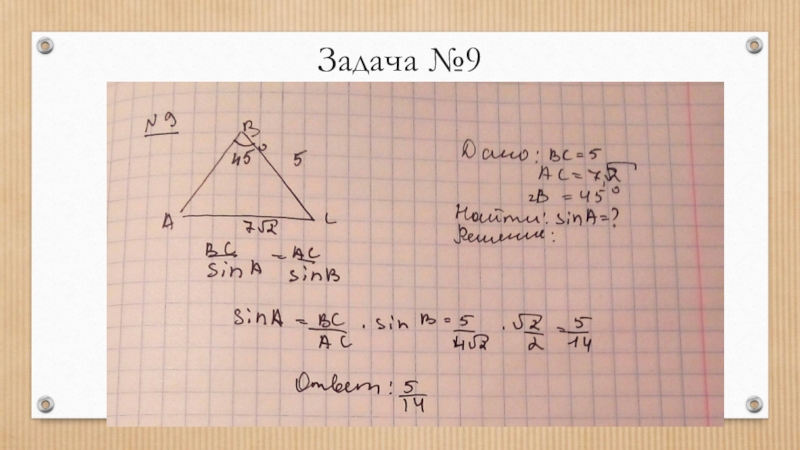 Задача №9
№ 9
B
45°
5
A
7√2
C
Дано: BC = 5
AC = 7√2
∠B = 45°
Найти: sinA = ?
Решение:
BC/sinA = AC/sinB
sinA = BC/AC · sin B = 5/7√2 · √2/2 = 5/14
Ответ: 5/14